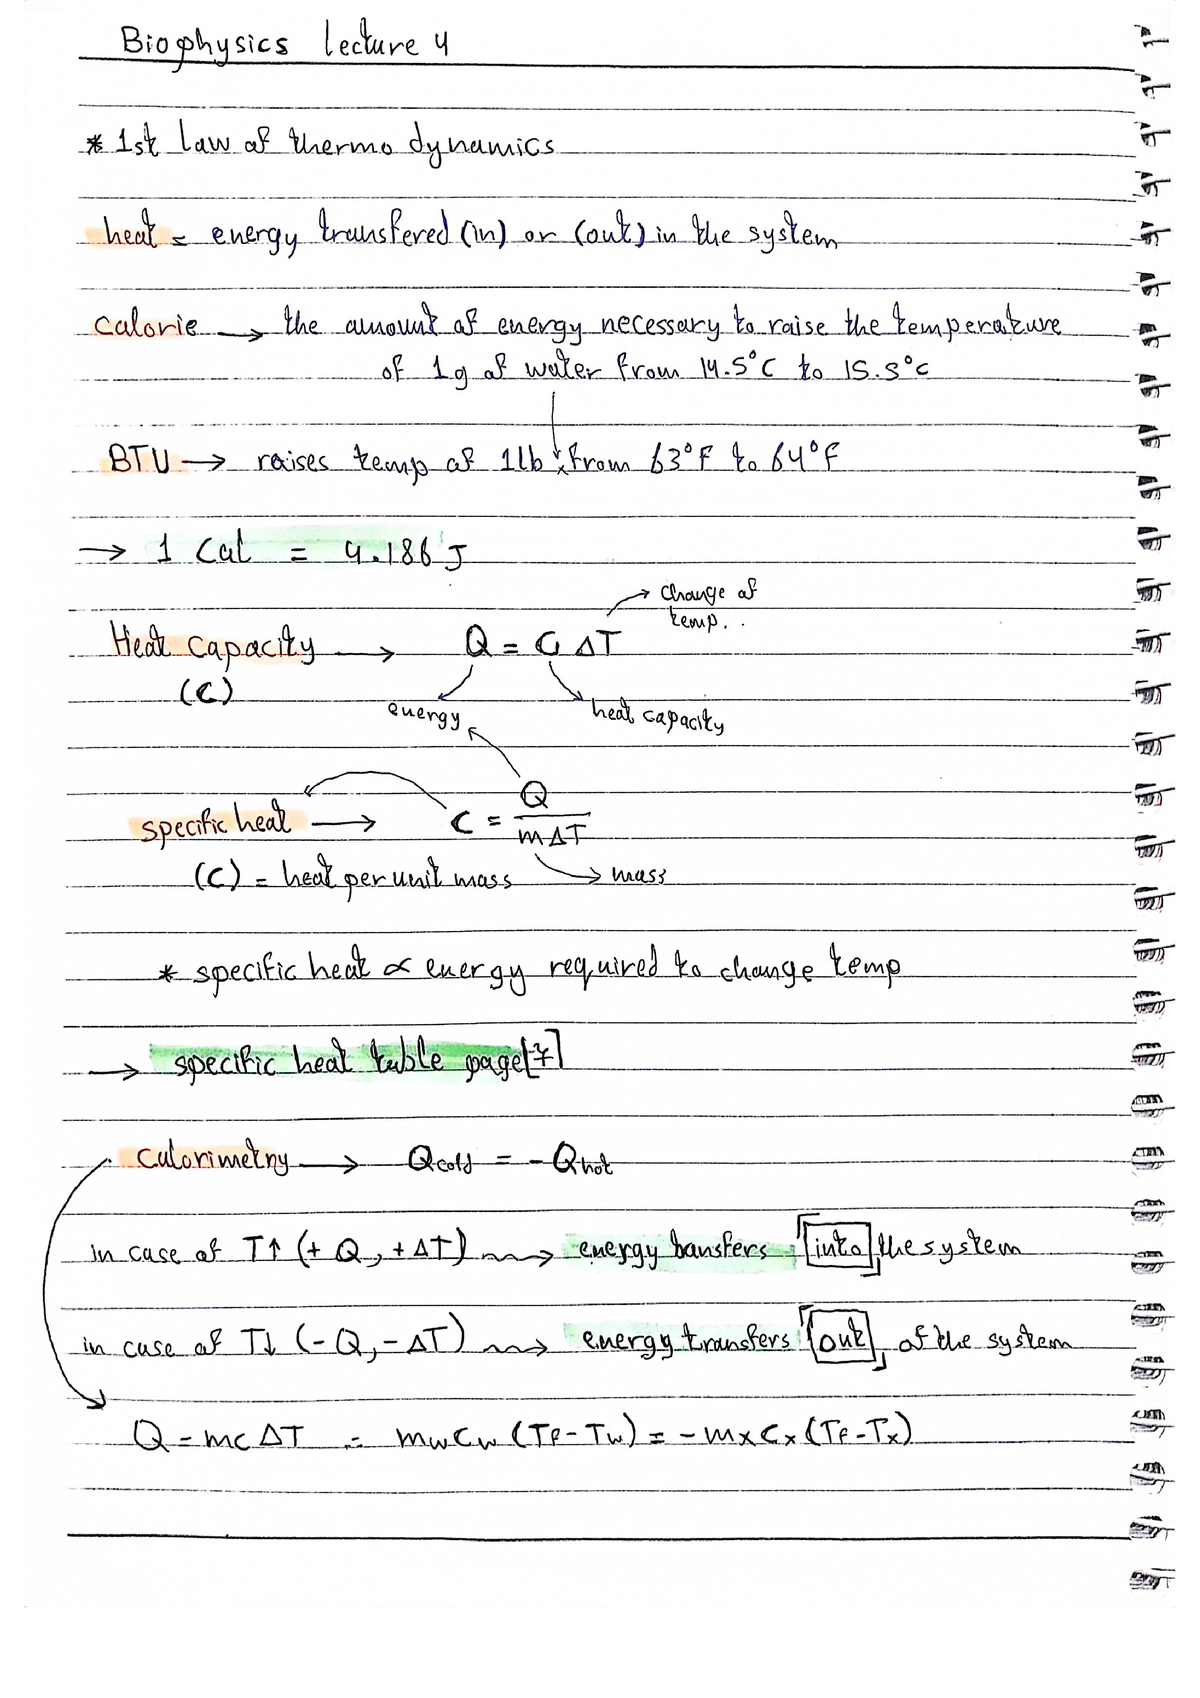 Biophysics lecture 4
* 1st law of thermo dynamics
heat = energy transfered (in) or (out) in the system
calorie → the amount of energy necessary to raise the temperature
of 1g of water from 14.5°C to 15.5°C
BTU → raises temp of 1lb x from 63°F to 64°F
→ 1 Cal = 4.186 J
→ change of
temp..
Heat capacity → Q = C ΔT
(C)
energy
heat capacity
specific heat → C = Q / mΔT
(C) = heat per unit mass → mass
* specific heat ∝ energy required to change temp
→ specific heat table page [7]
calorimetry → Qcold = - Qhot
in case of T↑ (+Q, +ΔT) → energy transfers [into] the system
in case of T↓ (-Q, -ΔT) → energy transfers [out] of the system
Q = mcΔT ∴ mwcw (Tf - Tw) = - mxcx (Tf - Tx)